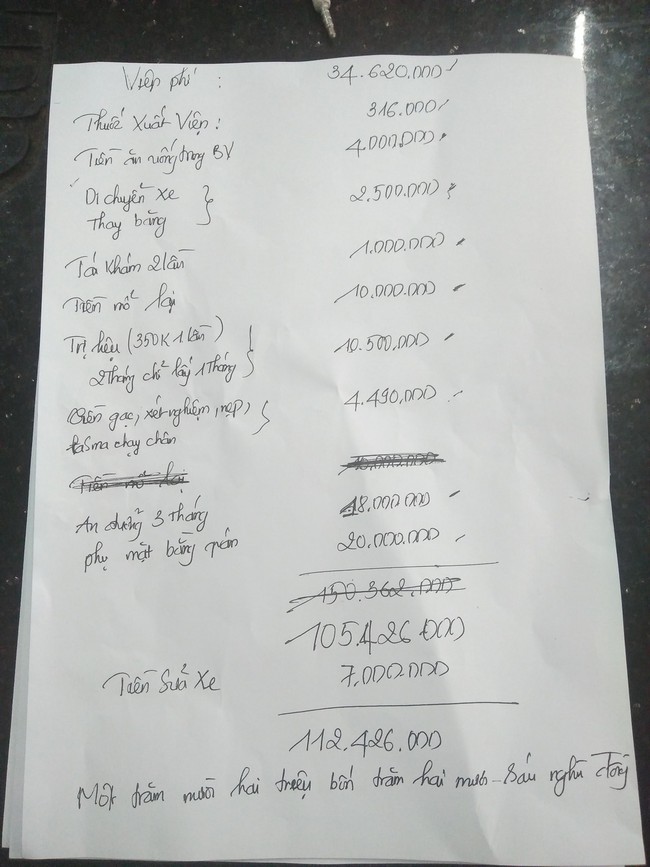 Viện phí : 34.620.000
Thuốc Xuất Viện : 316.000
Tiền ăn uống trong BV 4.000.000
Di chuyển xe 2.500.000
Thay băng
Tái khám 2 lần 1.000.000
Tiền mổ lại 10.000.000
Trị liệu (350K 1 lần) 10.500.000
2 tháng chỉ lấy 1 tháng
gạc, xét nghiệm, nẹp, 4.490.000
chạy chân
Tiền mổ lại 10.000.000
An dưỡng 3 tháng 18.000.000
phụ mặt bằng quán 20.000.000
150.362.000
105.426.000
Tiền Sửa Xe 7.000.000
112.426.000
Một trăm mười hai triệu bốn trăm hai mươi sáu nghìn đồng